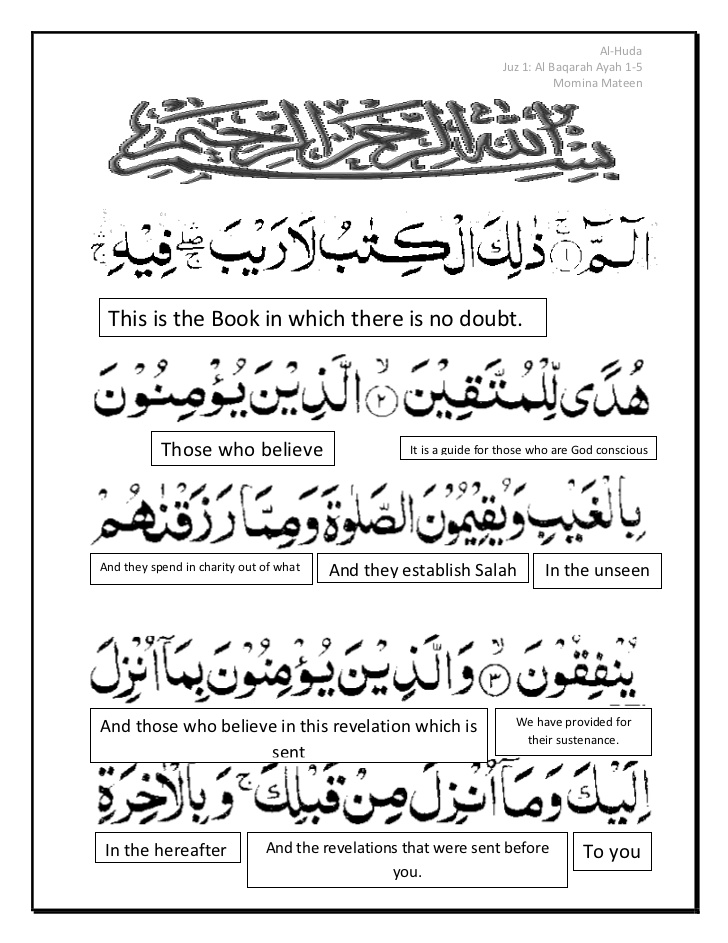 Al-Huda
Juz 1: Al Baqarah Ayah 1-5
Momina Mateen
بِسْمِ اللّٰهِ الرَّحْمٰنِ الرَّحِيْمِ
الٓـمّٓ ۚ ﴿١﴾ ذٰلِكَ الْكِتٰبُ لَا رَيْبَ ۛۖۚ فِيْهِ ۛۚ
This is the Book in which there is no doubt.
هُدًى لِّلْمُتَّقِيْنَ ۙ﴿٢﴾ الَّذِيْنَ يُؤْمِنُوْنَ
It is a guide for those who are God conscious
Those who believe
بِالْغَيْبِ وَ يُقِيْمُوْنَ الصَّلٰوةَ وَمِمَّا رَزَقْنٰهُمْ
In the unseen
And they establish Salah
And they spend in charity out of what
يُنْفِقُوْنَ ۙ﴿٣﴾ وَالَّذِيْنَ يُؤْمِنُوْنَ بِمَآ اُنْزِلَ
We have provided for
their sustenance.
And those who believe in this revelation which is
sent
اِلَيْكَ وَمَآ اُنْزِلَ مِنْ قَبْلِكَ ۚ وَبِالْاٰخِرَةِ
To you
And the revelations that were sent before
you.
In the hereafter